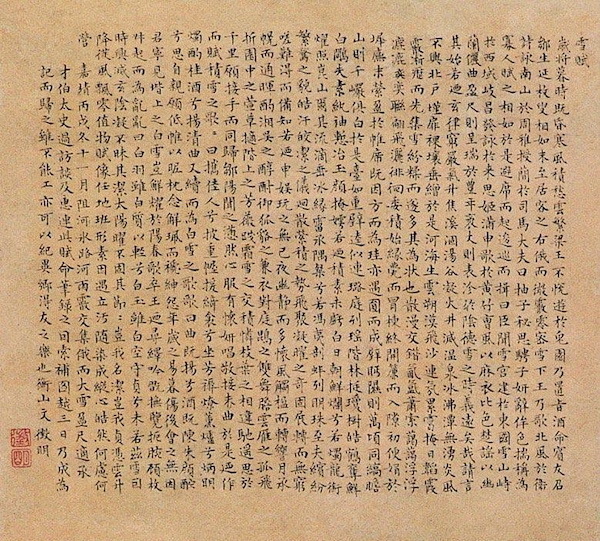 雪賦
歲將暮時既昏寒風積愁雲繁梁王不悅遊於兔園乃置旨酒命賓友召
鄒生延枚叟相如末至居客之右俄而微霰零密雪下王乃歌北風於衛
詩詠南山於周雅授簡於司馬大夫曰抽子秘思騁子妍辭侔色揣稱為
寡人賦之相如於是避席而起逡巡而揖曰臣聞雪宮建於東國雪山峙
於西域岐昌發詠於來思姬滿申歌於黃竹曹風以麻衣比色楚謠以幽
蘭儷曲盈尺則呈瑞於豐年袤丈則表沴於陰德雪之時義遠矣哉請言
其始若迺玄律窮嚴氣升焦溪涸湯谷凝火井滅溫泉冰沸潭無湧炎風
不興北戶墐扉裸壤垂繒於是河海生雲朔漠飛沙連氛累靄掩日韜霞
霰淅瀝而先集雪紛糅而遂多其為狀也散漫交錯氛氳蕭索藹藹浮浮
瀌瀌奕奕聯翩飛灑徘徊委積始緣甍而冒棟終開簾而入隙初便娟於
墀廡末縈盈於帷席既因方而為珪亦遇圓而成璧眄隰則萬頃同縞瞻
山則千巖俱白於是臺如重璧逵似連璐庭列瑤階林挺瓊樹皓鶴奪鮮
白鷴失素紈袖慙冶玉顏掩嫮若迺積素未虧白日朝鮮爛兮若燭龍銜
燿照崑山爾其流滴垂冰緣霤承隅粲兮若馮夷剖蚌列明珠至夫繽紛
繁騖之貌皓汗皦潔之儀迴散縈積之勢飛聚凝曜之奇固展轉而無窮
嗟難得而備知若迺申娛玩之無已夜幽靜而多懷風觸楹而轉響月承
幌而通暉酌湘吳之醇酎御狐貉之兼衣對庭鵾之雙舞瞻雲雁之孤飛
折園中之萱草摘階上之芳薇踐霜雪之交積憐枝葉之相違馳遙思於
千里願接手而同歸鄒陽聞之懣然心服有懷妍唱敬接末曲於是迺作
而賦積雪之歌曰攜佳人兮披重幄援綺衾兮坐芳褥燎薰爐兮炳明
燭酌桂酒兮揚清曲又續而為白雪之歌歌曰曲既揚兮酒既陳朱顏酡
兮思自親願低帷以昵枕念解珮而褫紳怨年歲之易暮傷後會之無因
君寧見堦上之白雪豈鮮耀於陽春歌卒王迺尋繹吟翫撫覽扼腕顧枚
叔起而為亂亂曰白羽雖白質以輕兮白玉雖白空守貞兮未若茲雪因
時興滅玄陰凝不昧其潔太陽曜不固其節豈我名潔豈我貞憑雲升
降從風飄零值物賦像任地班形素因遇立汙隨染成縱心皓然何慮何
營 嘉靖丙戌冬十一月阻河水路河西霰交集俄而大雪盈尺適承
才伯太史過訪談及惠連此賦命筆錄之因索補圖越三日乃成為
記而歸之雖不能工亦可以紀異鄉得友之樂也衡山文徵明